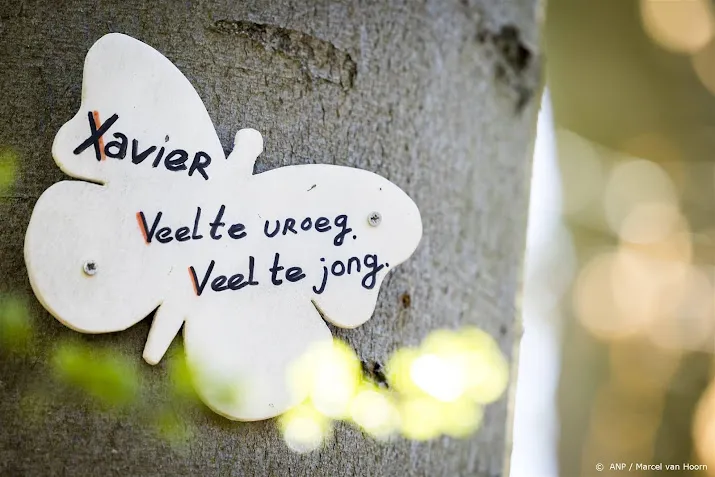 Xavier
Veel te vroeg.
Veel te jong.
© ANP / Marcel van Hoorn